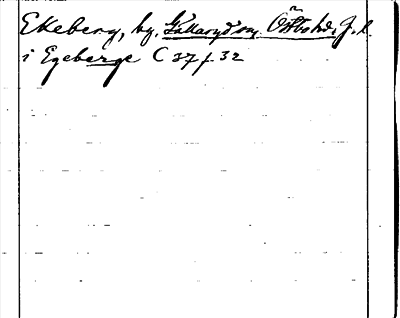 Ekeberg, by, Källaryd sn, Östbo hd, J. l.
i Egeberge C 37 f 32